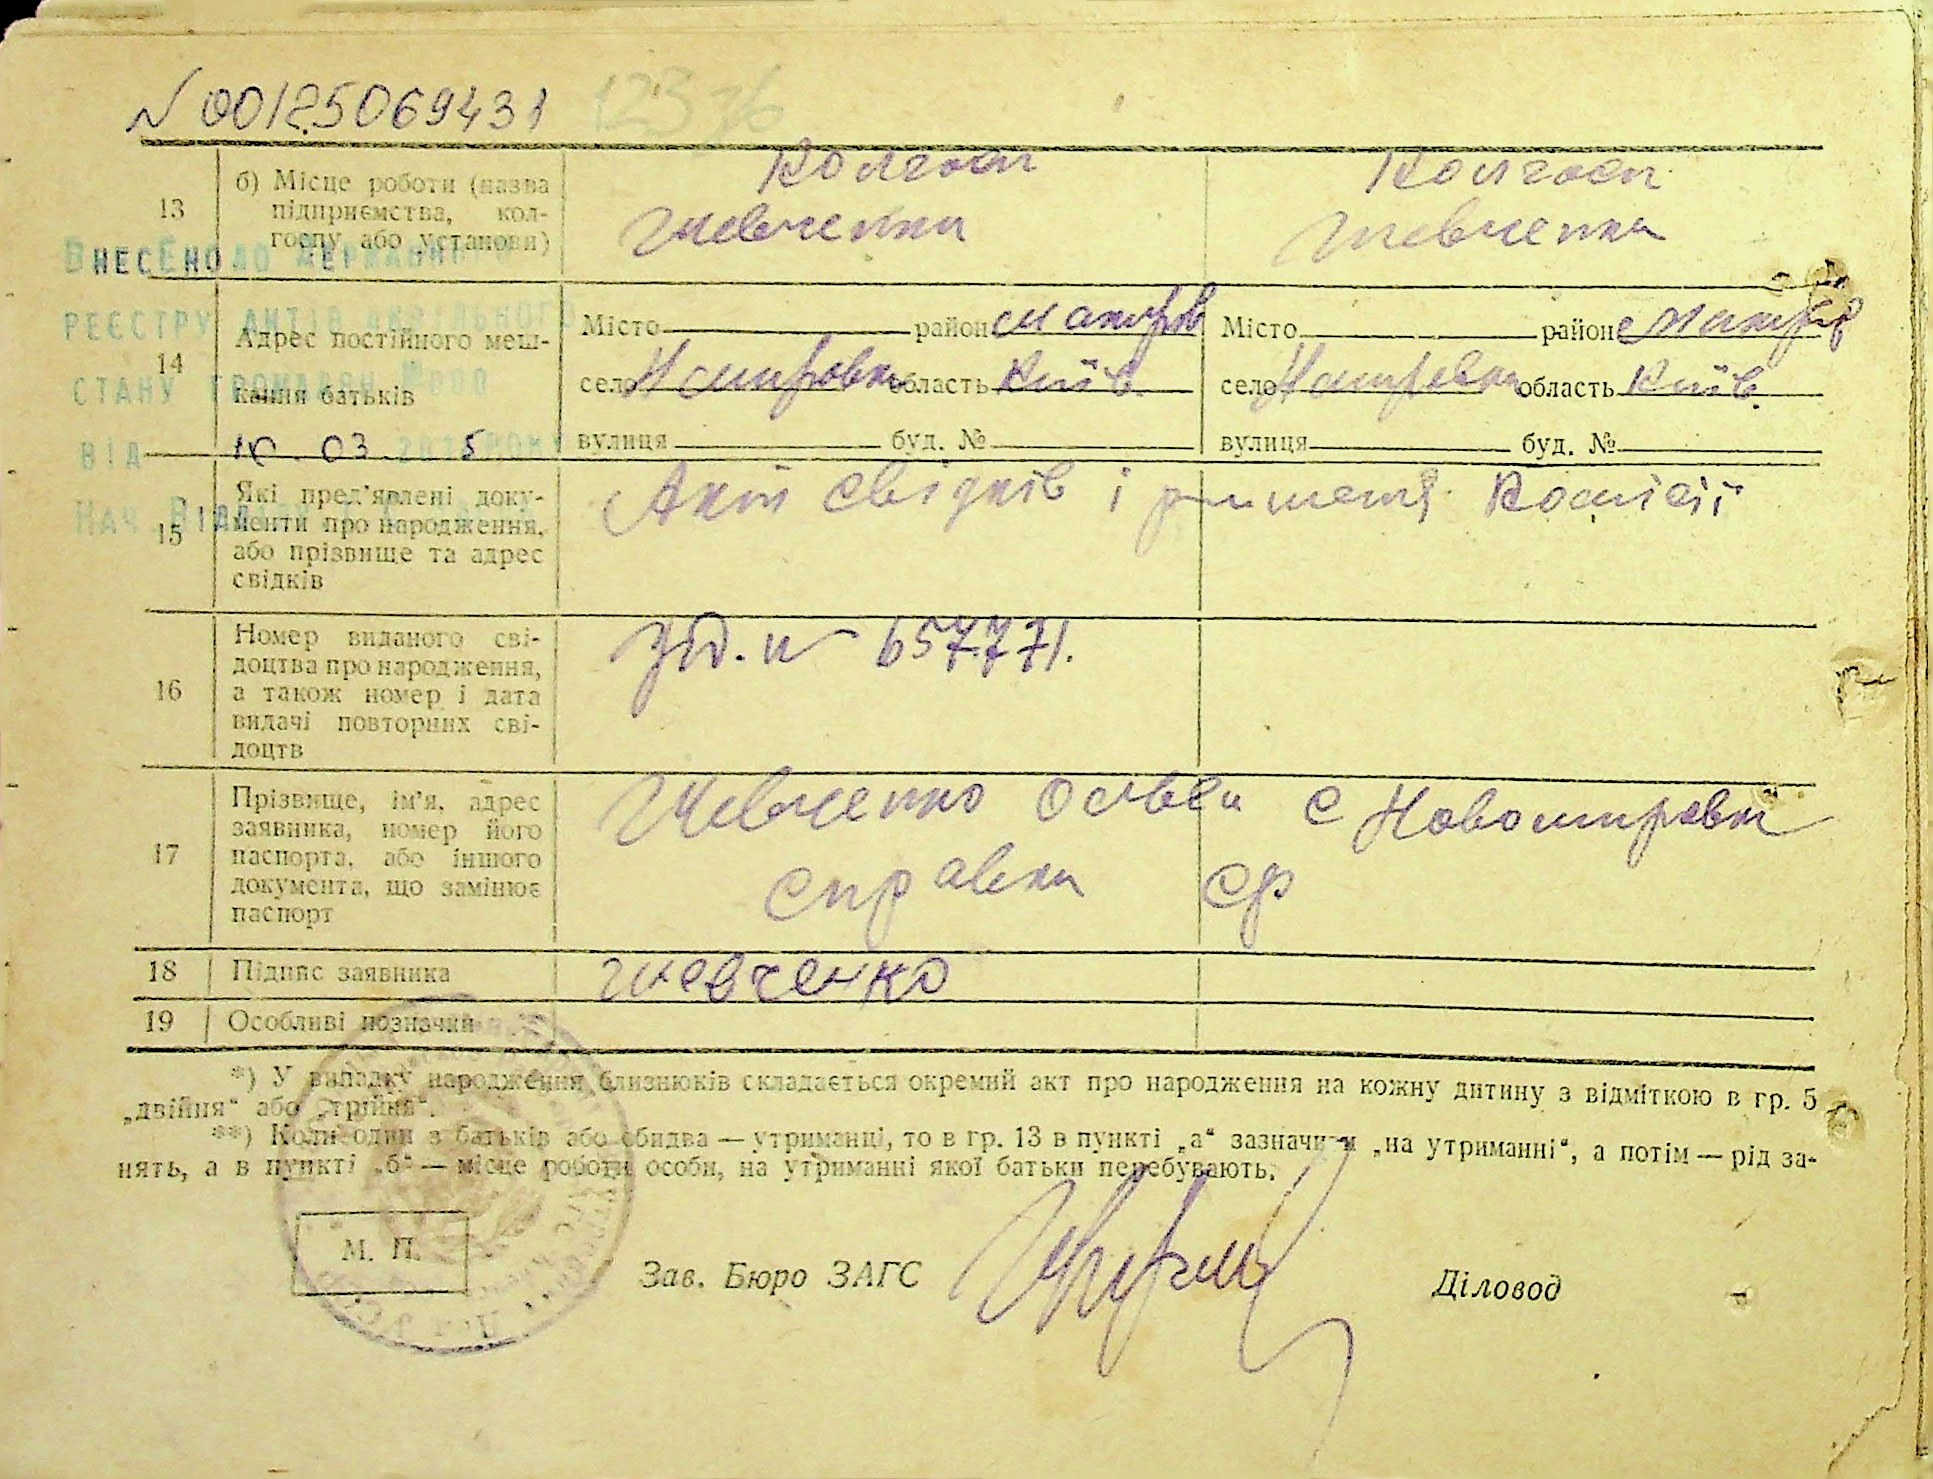 N 00125069431
13
б) Місце роботи (назва
підприємства, кол-
госпу або установи)
Колгосп
Шевченка
Колгосп
Шевченка
ВНЕСЕНО ДО ДЕРЖАВНОГО
РЕЄСТРУ АКТІВ ЦИВІЛЬНОГО
СТАНУ ГРОМАДЯН
ВІД 10. 03. 2015
НАЧ. ВІДДІЛУ
14
Адрес постійного меш-
кання батьків
Місто район Макарів
село область Київ.
вулиця буд. №
Місто район Макарів
село область Київ.
вулиця буд. №
15
Які пред'явлені доку-
менти про народження,
або прізвище та адрес
свідків
Акт свідків і рішення Комісії
16
Номер виданого сві-
доцтва про народження,
а також номер і дата
видачі повторних сві-
доцтв
657771.
17
Прізвище, ім'я, адрес
заявника, номер його
паспорта, або іншого
документа, що замінює
паспорт
Шевченко с
справка
18
Підпис заявника
Шевченко
19
Особливі позначки
*) У випадку народження близнюків складається окремий акт про народження на кожну дитину з відміткою в гр. 5
„двійня“ або „трійня“.
**) Коли один з батьків або обидва — утриманці, то в гр. 13 в пункті „а“ зазначити „на утриманні“, а потім — рід за-
нять, а в пункті „б“ — місце роботи особи, на утриманні якої батьки перебувають.
М. П.
Зав. Бюро ЗАГС
Діловод